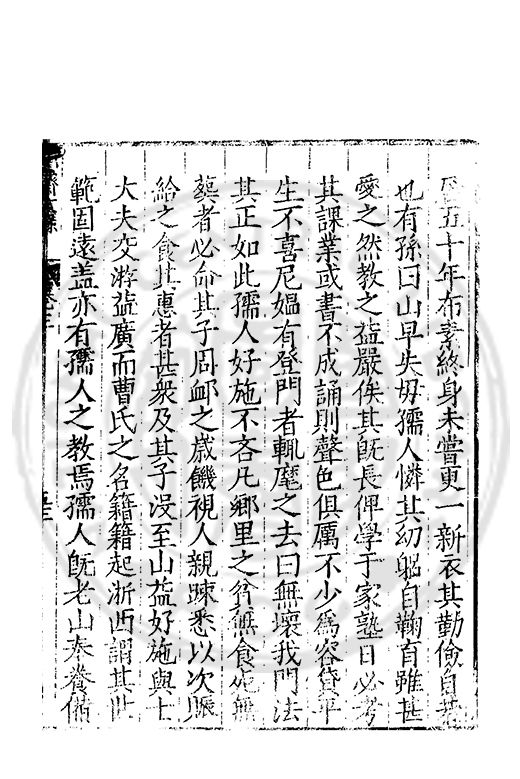 五十年布素終身未嘗更一新衣其勤儉自
也有孫曰山早失母孺人憐其幼躬自鞠育雖甚
愛之然教之益嚴俟其旣長俾學于家塾日必考
其課業或書不成誦則聲色俱厲不少爲容貸平
生不喜尼媼有登門者輒麾之去曰無壞我門法
其正如此孺人好施不吝凡鄉里之貧無食死無
蔾者必命其子周卹之歲饑視人親踈悉以次賑
給之食其惠者甚衆及其子浸至山益好施與士
大夫交游益廣而曹氏之名籍籍起浙西謂其世
範固遠盖亦有孺人之教焉孺人旣老山奉養備